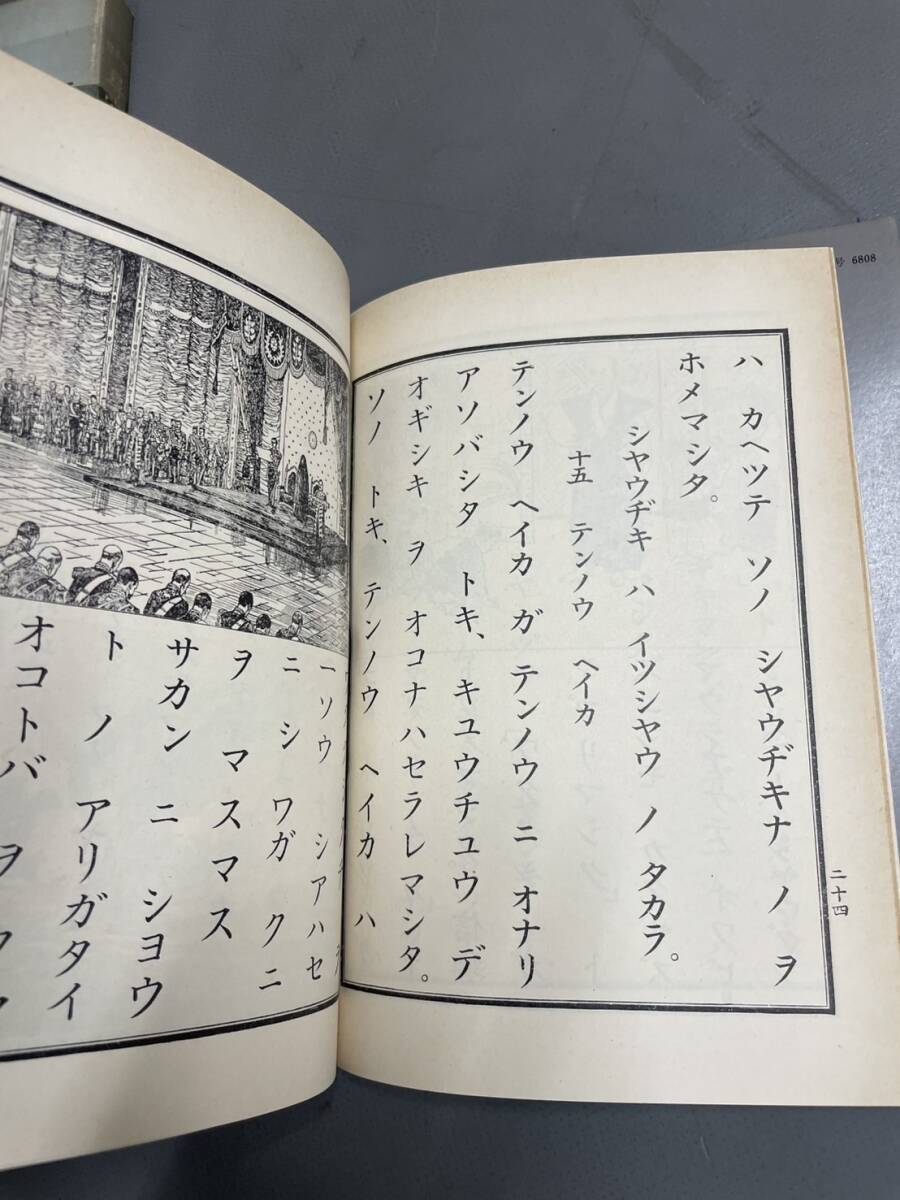 号 6808
ハ カヘツテ ソノ シヤウヂキナ ノヲ
ホメマシタ。
シヤウヂキ ハ イツシヤウ ノ タカラ。
十五 テンノウ ヘイカ
テンノウ ヘイカ ガ テンノウ ニ オナリ
アソバシタ トキ、キユウチユウ デ
オギシキ ヲ オコナハセラレマシタ。
ソノ トキ、テンノウ ヘイカ ハ
二十四
一ソウ シアハセ
ニ シ ワガ クニ
ヲ マスマス
サカン ニ シヨウ
ト ノ アリガタイ
オコトバ ヲ